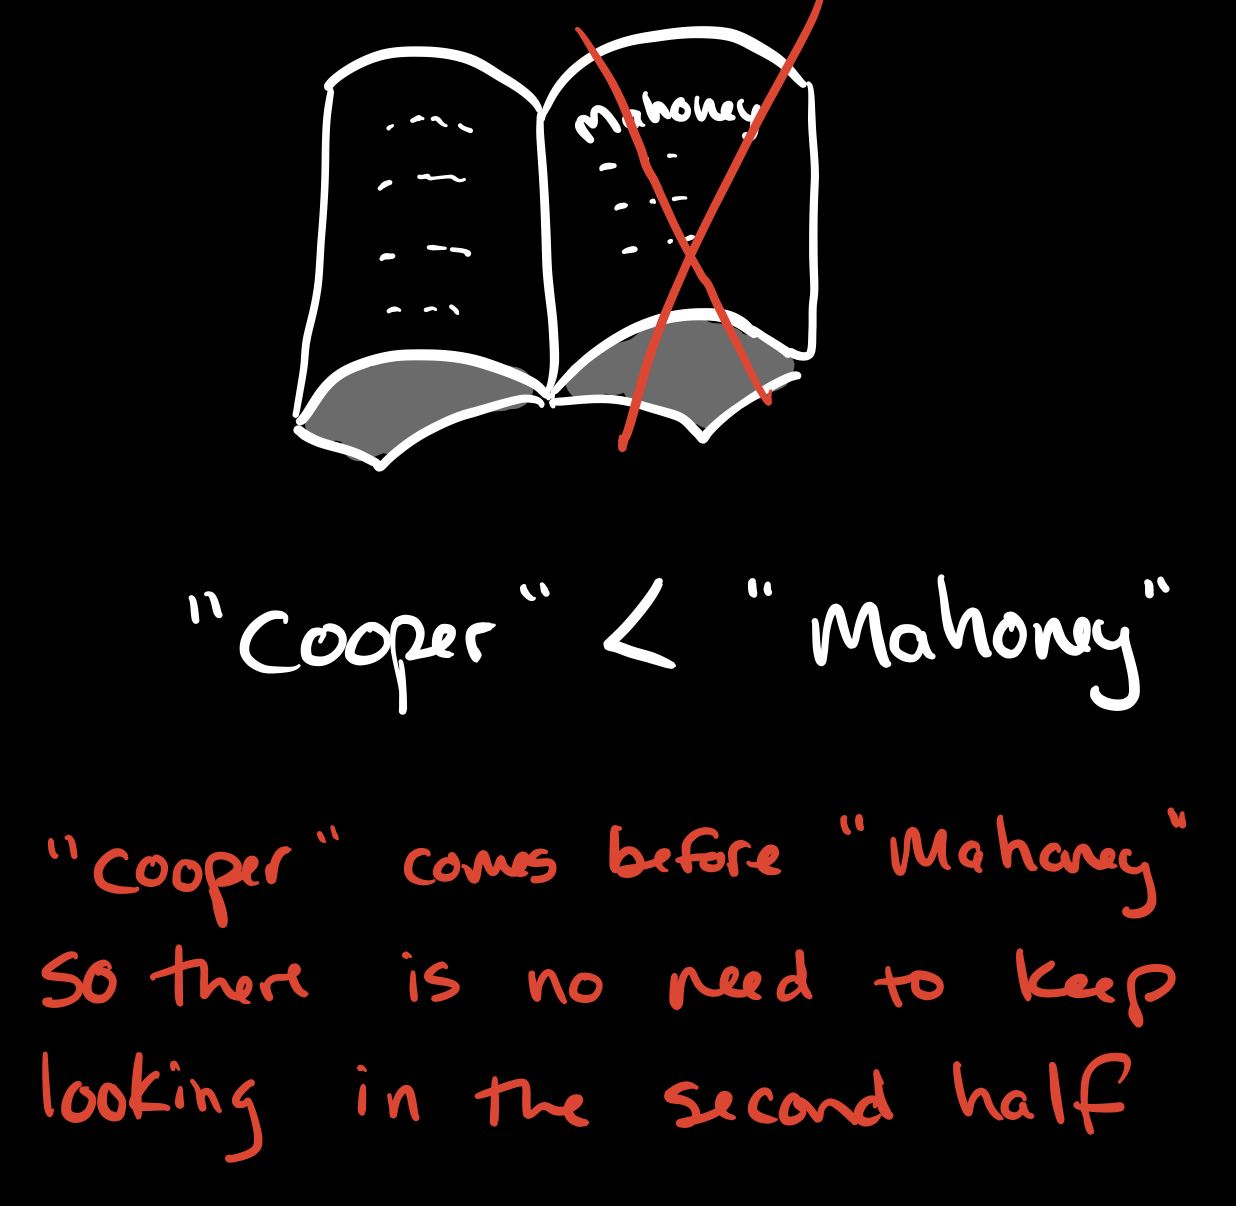 Mahoney
"Cooper" < "Mahoney"
"Cooper" comes before "Mahoney"
so there is no need to keep
looking in the second half